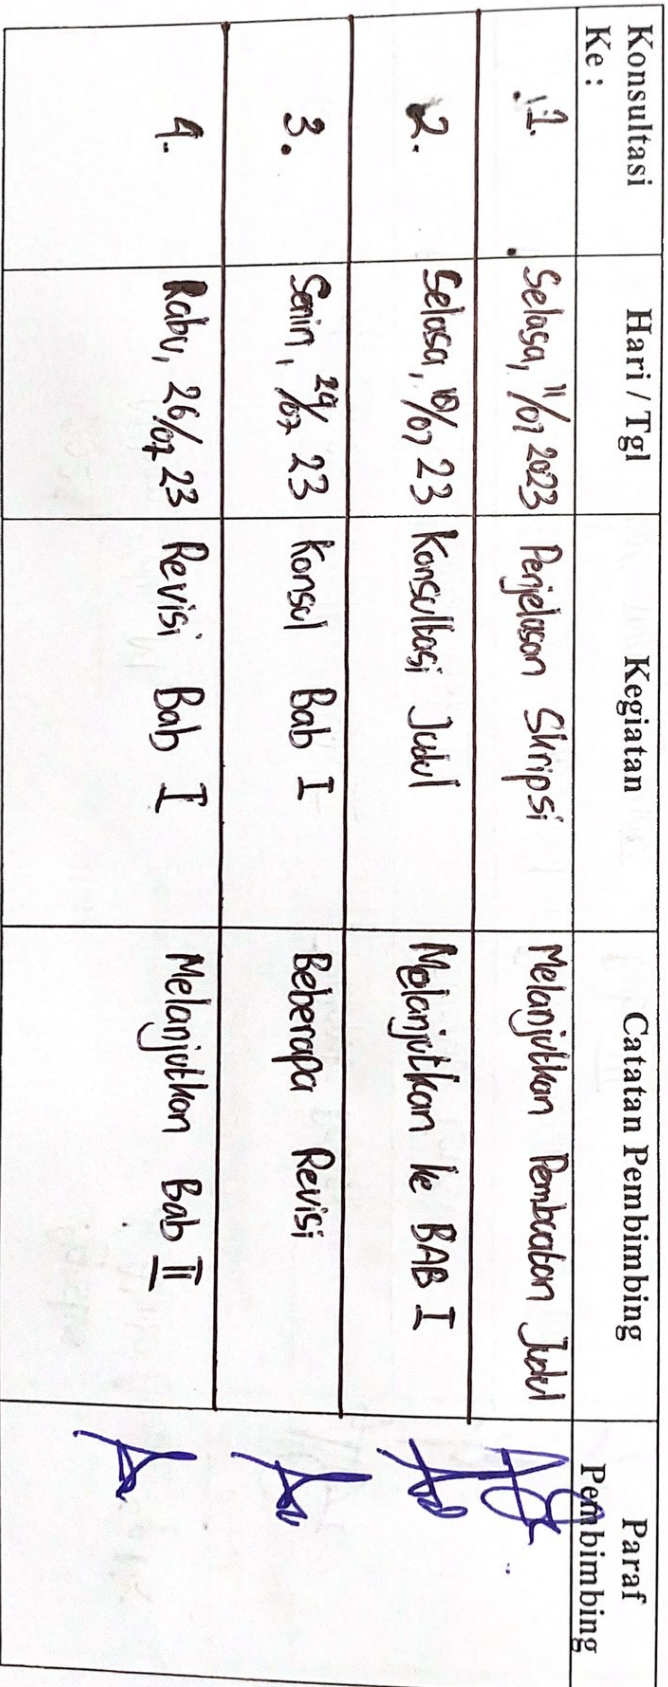 Konsultasi Ke : Hari / Tgl Kegiatan Catatan Pembimbing Paraf Pembimbing
1. Selasa, 11/07 2023 Penjelasan Skripsi Melanjutkan Pembuatan Judul
2. Selasa, 18/07 23 Konsultasi Judul Melanjutkan ke BAB I
3. Senin, 24/07 23 Konsul Bab I Beberapa Revisi
4. Rabu, 26/07 23 Revisi Bab I Melanjutkan Bab II